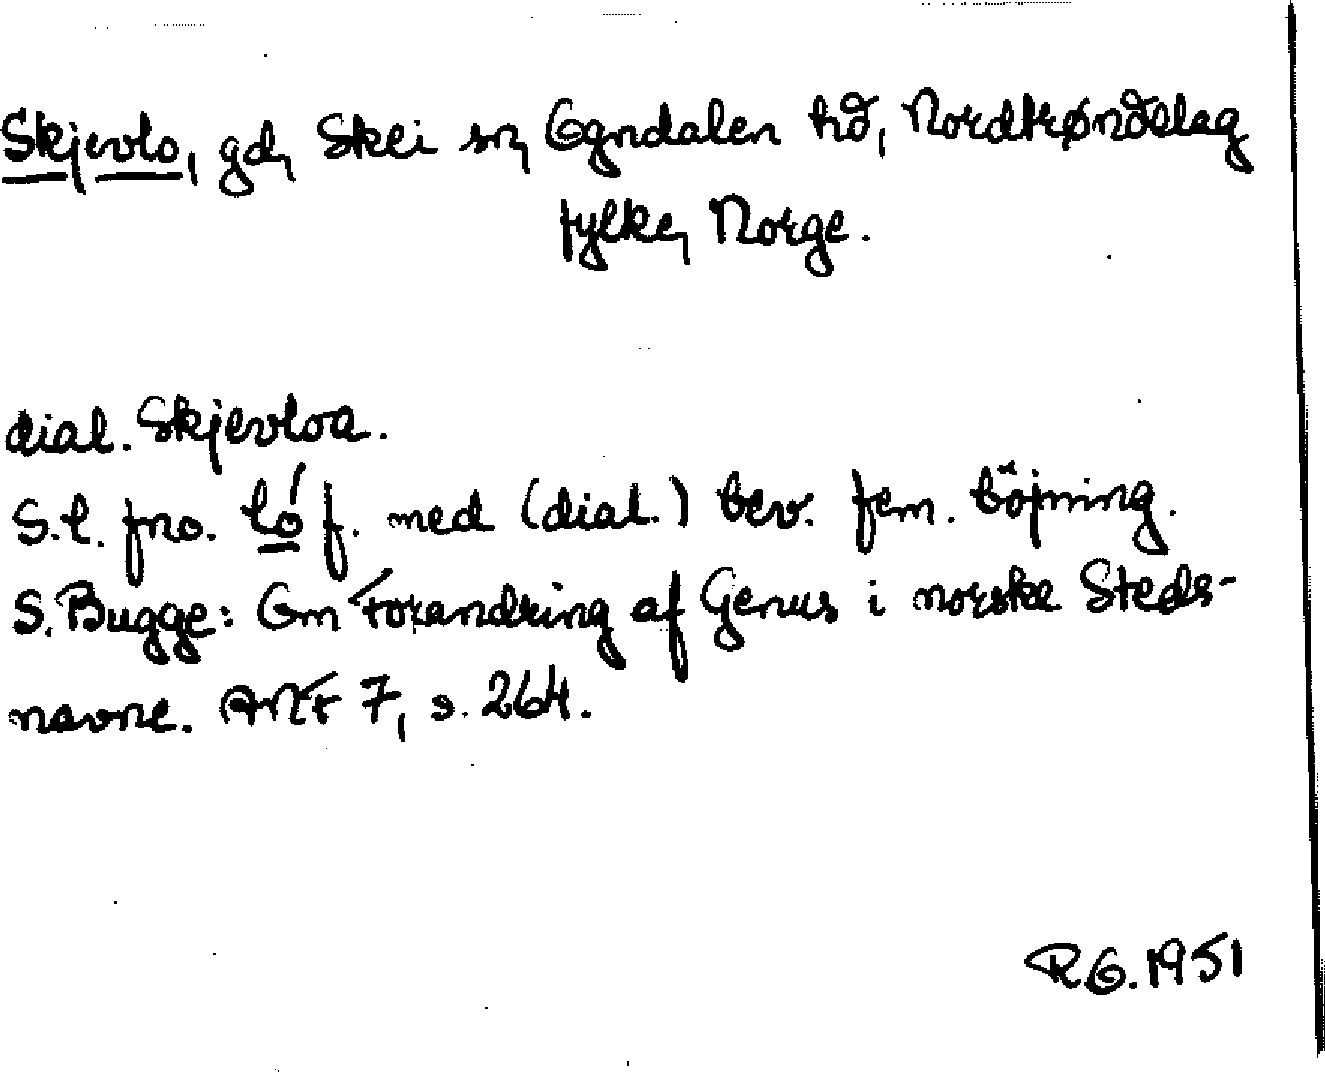 Skjevlo, gd, Skei sn, Ogndalen hd, Nordtrøndelag
fylke, Norge.
dial. Skjevloa.
S.l. fno. ló f. med (dial.) bev. fem. böjning.
S. Bugge: Om Forandring af Genus i norske Steds-
navne. ANF 7, s. 264.
R.O. 1951